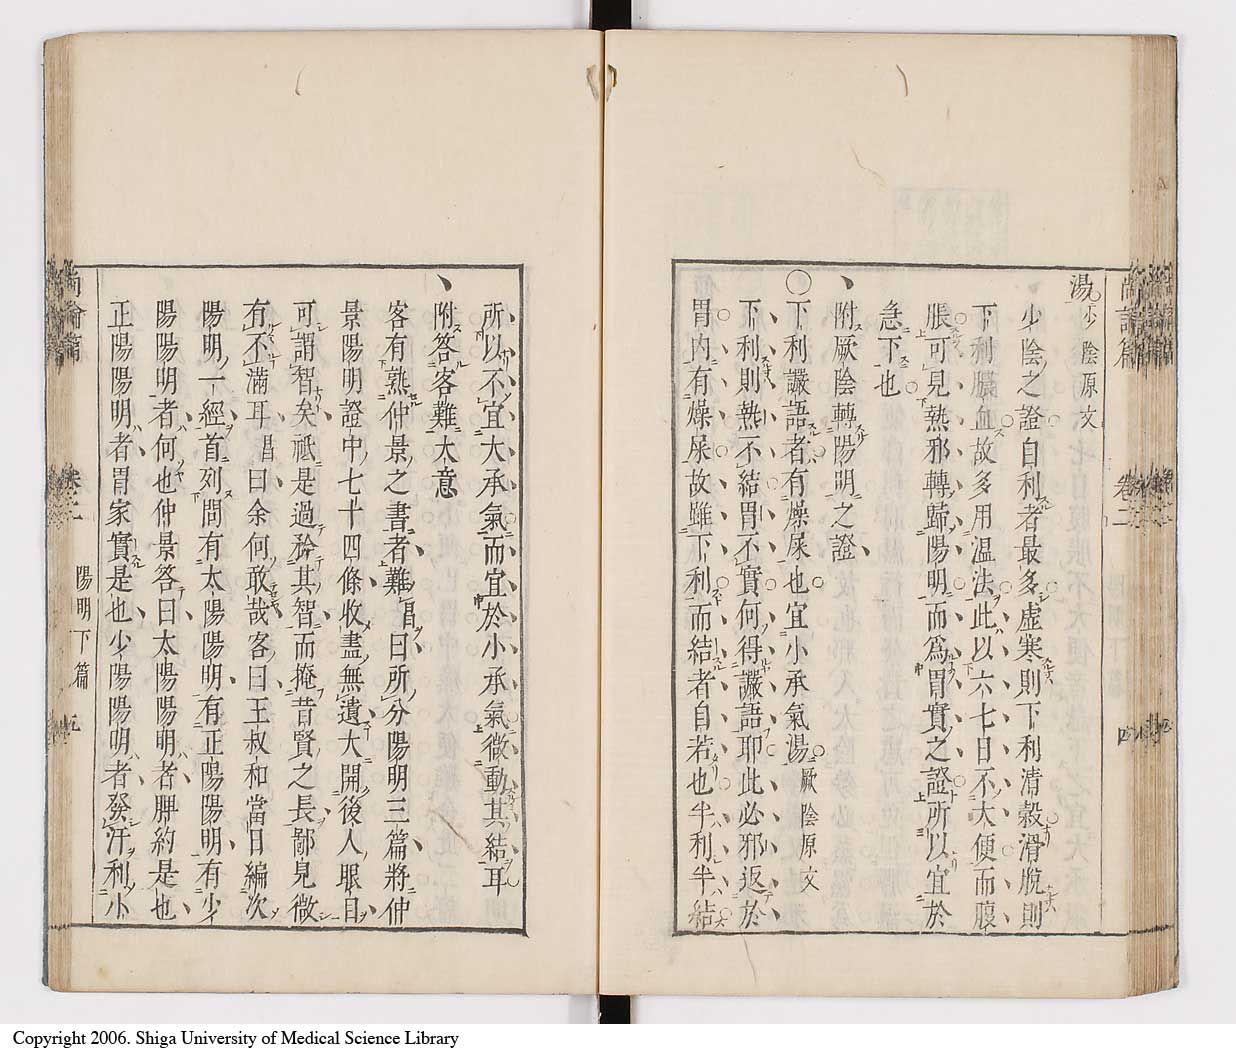 湯少陰原文
少陰之證自利者最多虛寒則下利清穀滑脫則
下利膿血故多用温法此以六七日不大便而腹
脹可見熱邪轉歸陽明而爲胃實之證所以宜於
急下也
附厥陰轉陽明之證
〇下利讝語者有燥屎也宜小承氣湯厥陰原文
下利則熱不結胃不實何得讝語耶此必邪返於
胃内有燥屎故雖下利而結者自若也半利半結
尚論篇 卷二 四
所以不宜大承氣而宜於小承氣微動其結耳
附答客難大意
客有熟仲景之書者難昌曰所分陽明三篇將仲
景陽明證中七十四條收盡無遺大開後人眼目
可謂智矣祗是過矜其智而掩昔賢之長鄙見微
有不滿耳昌曰余何敢哉客曰王叔和當日編次
陽明一經首列問有太陽陽明有正陽陽明有少
陽陽明者何也仲景答曰太陽陽明者脾約是也
正陽陽明者胃家實是也少陽陽明者發汗利小
尚論篇 卷之二 陽明下篇 五
Copyright 2006. Shiga University of Medical Science Library